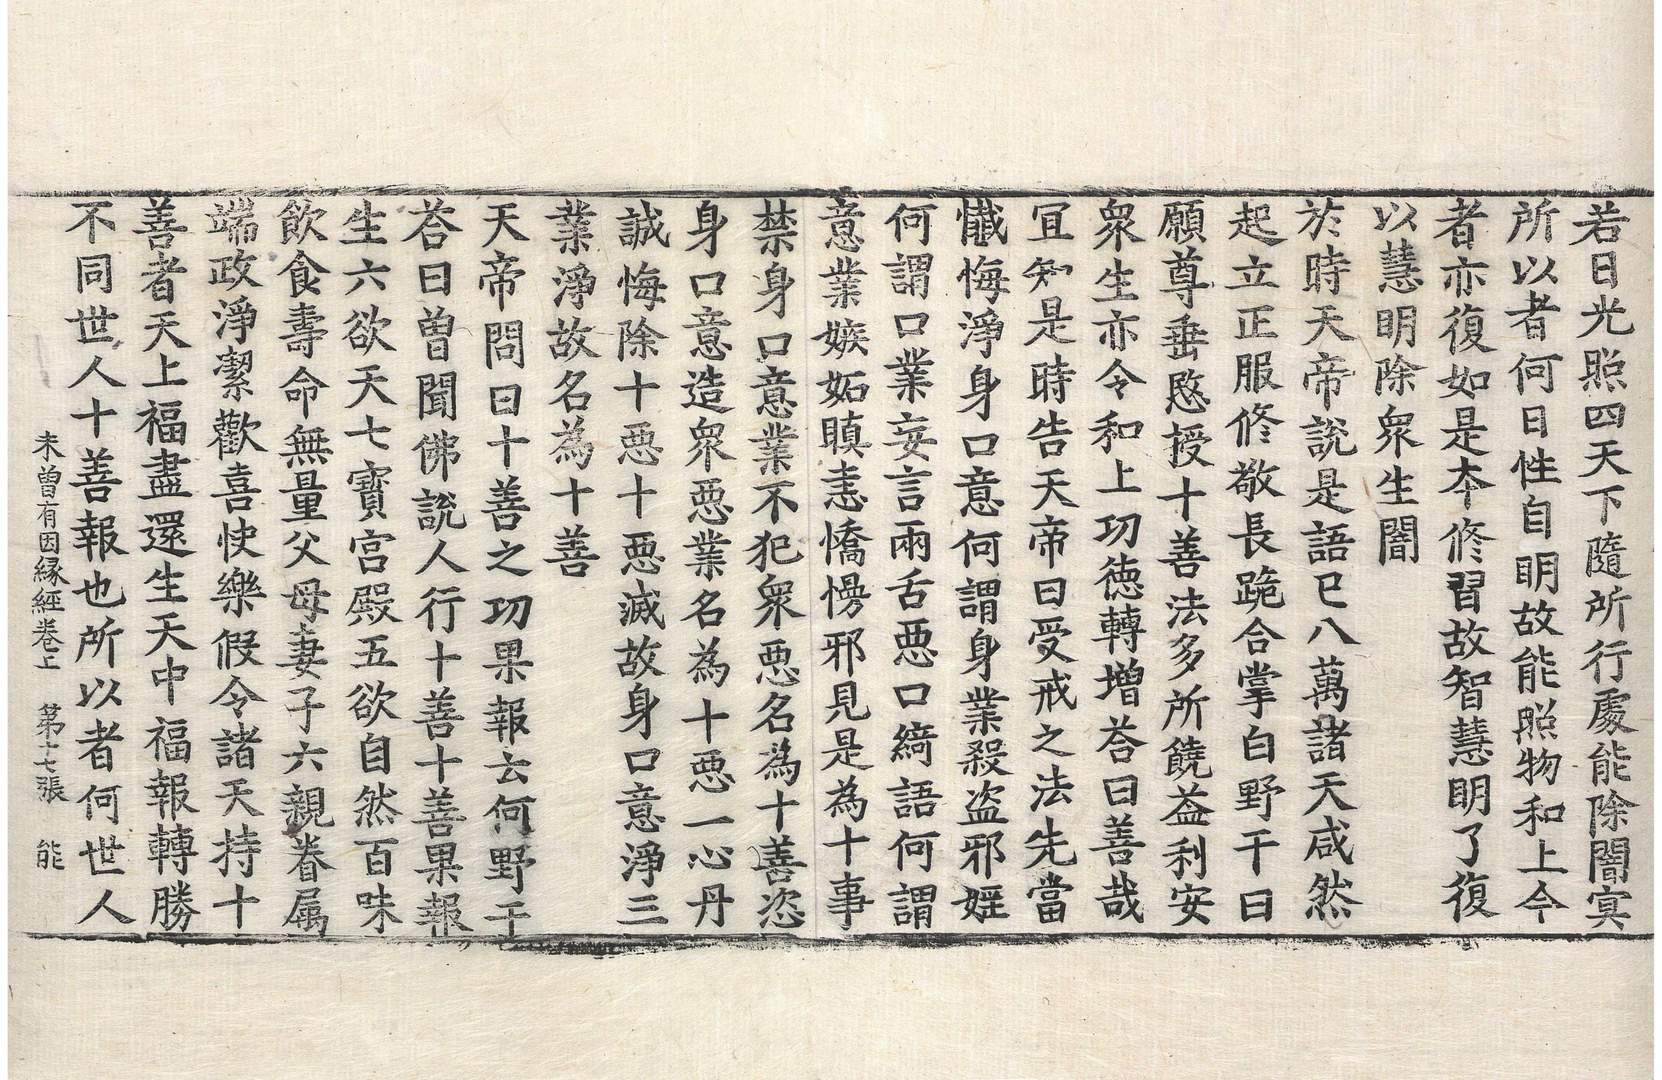 若日光照四天下隨所行處能除闇冥
所以者何日性自明故能照物和上今
者亦復如是夲修習故智慧明了復
以慧明除衆生闇
於時天帝說是語已八萬諸天咸然
起立正服修敬長跪合掌白野干曰
願尊垂愍授十善法多所饒益利安
衆生亦令和上功徳轉增荅曰善哉
冝知是時告天帝曰受戒之法先當
懺悔淨身口意何謂身業殺盗邪婬
何謂口業妄言兩舌惡口綺語何謂
意業嫉妬瞋恚憍慢邪見是為十事
禁身口意業不犯衆惡名為十善恣
身口意造衆惡業名為十惡一心丹
誠悔除十惡十惡滅故身口意淨三
業淨故名為十善
天帝問曰十善之功果報云何野干
荅曰曽聞佛說人行十善十善果報
生六欲天七寶宮殿五欲自然百味
飲食壽命無量父母妻子六親眷属
端政淨潔歡喜快樂假令諸天持十
善者天上福盡還生天中福報轉勝
不同世人十善報也所以者何世人
未曽有因縁經卷上 第十七張 能